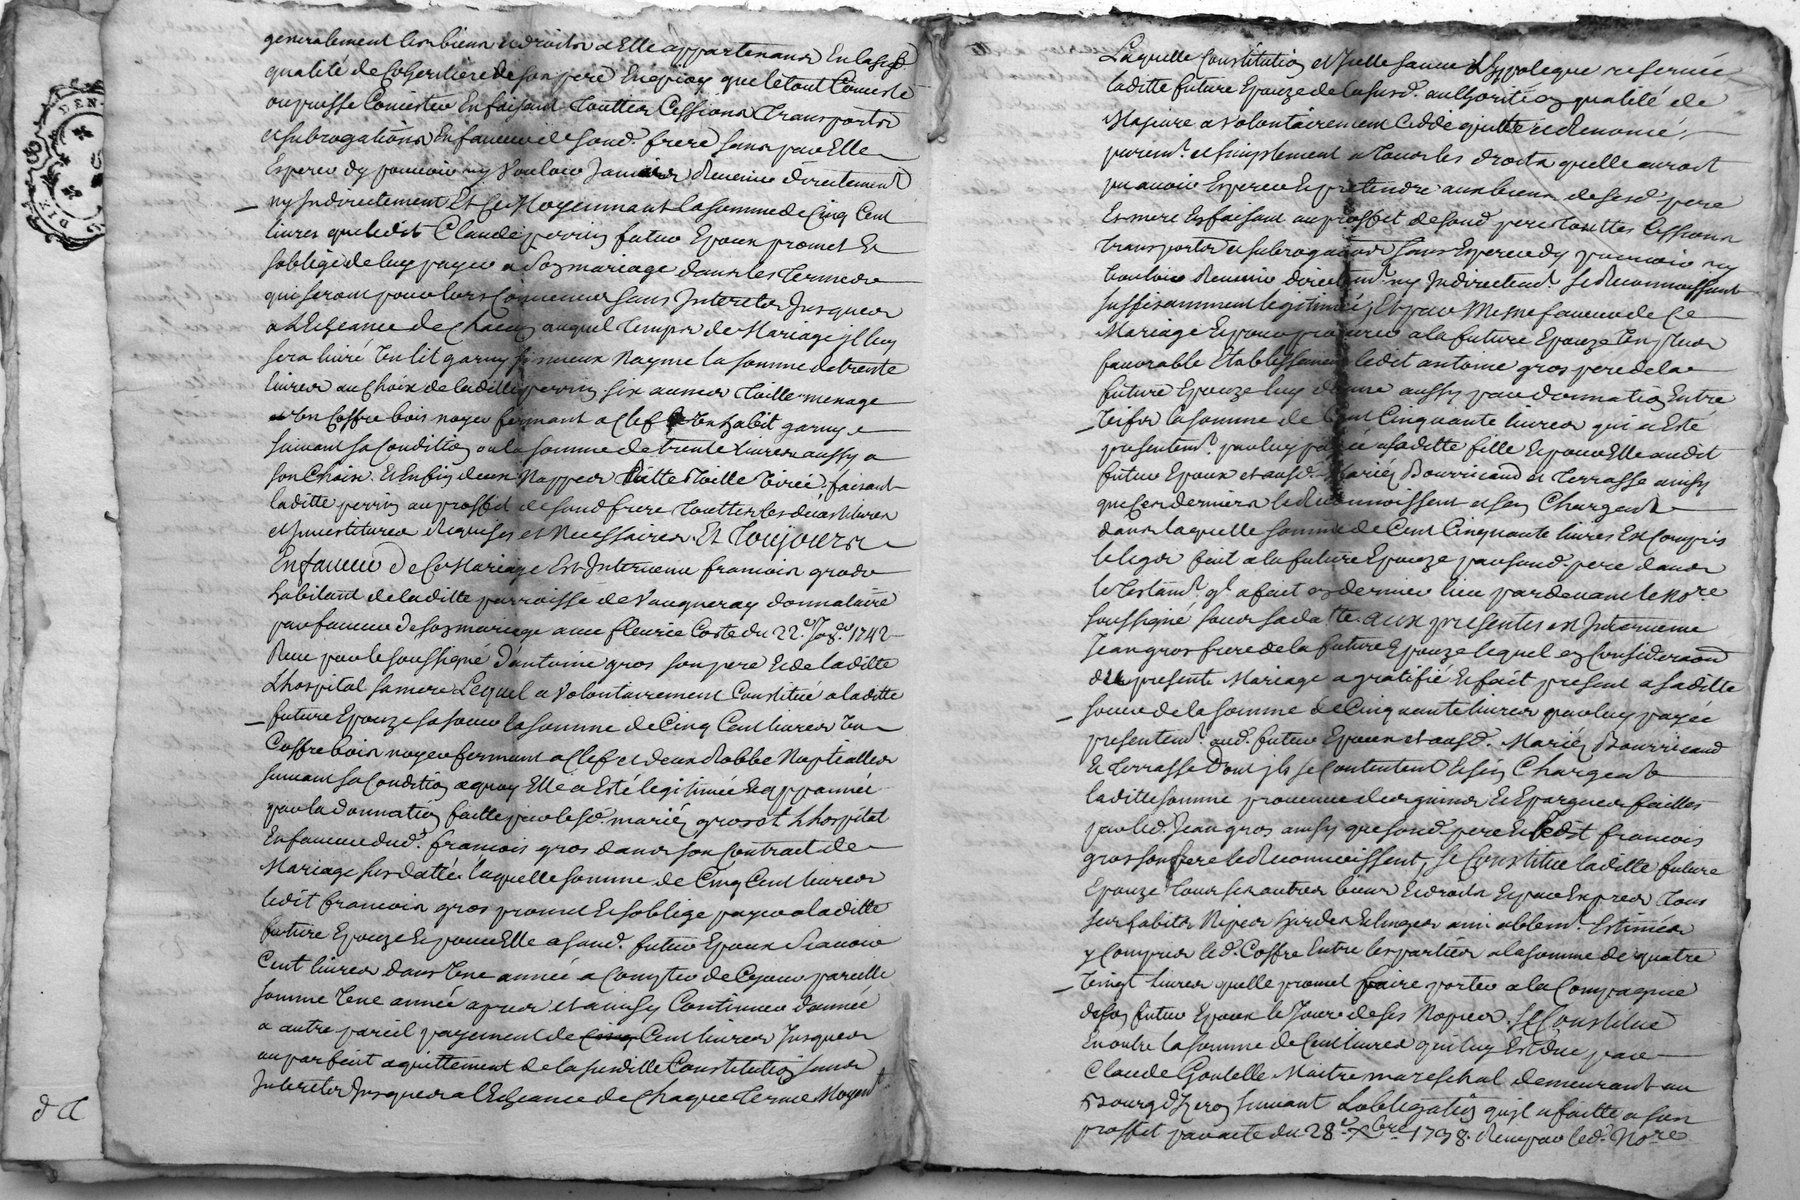 DIX DEN
generalement les biens et droits a Elle appartenans En lasusd
qualité de Coheritiere de son pere En quoy que le tout Consiste
ou puisse Consister En faisant Touttes Cessions Transports
et subrogations En faveur de sond. frere sans par Elle
Esperer dy pouvoir ny Vouloir Jamais Revenir directement
ny Indirectement Et Ce Moyennant la somme de Cinq Cent
livres que ledit Claude perrin futur Epoux promet Et
soblige de luy payer a son mariage dans les Termes
qui seront pour lors Convenus sans Interets Jusques
a LEcheance de Chacun auquel Temps de Mariage Il luy
sera livré Un lit garny si mieux Nayme la somme de trente
livres au Choix de laditte perrin six aunes Toille menage
Un Coffre bois noyer fermant a Clef Un habit garny
suivant sa Condition ou la somme de trente livres aussy a
son Choix. Et Enfin deux Nappes ditte Toille Tirée, faisant
laditte perrin au proffit de sond frere Touttes les devestitures
et Investitures Requises et Necessaires. Et Toujours
En faveur de Ce Mariage Est Intervenu francois gros
habitant de laditte parroisse de Vaugneray donnataire
par faveur de son mariage avec fleurie Coste du 22.e 1742
Reçu par le soussigné d'antoine gros son pere Et de laditte
Lhospital sa mere Lequel a Volontairement Constitué a laditte
future Epouze sa soeur la somme de Cinq Cent livres Un
Coffre bois noyer fermant a Clef et deux Robbe Nuptialles
suivant sa Condition a quoy Elle a Eté legitimée Et appannée
par la donnation faitte par lesd. mariéz gros et Lhospital
En faveur dud. francois gros dans son Contract de
Mariage sus datté, laquelle somme de Cinq Cent livres
ledit francois gros promet Et soblige payer a laditte
future Epouze Et pour Elle a sond. futur Epoux Scavoir
Cent livres dans Une année a Compter de Ce jour pareille
somme Une année apres et ainsy Continuer d'année
a autre pareil payement de Cinq Cent livres Jusques
au parfait aquittement de la susditte Constitution sans
Interets Jusques a lEcheance de Chaque Terme Moyent
Laquelle Constitution et Icelle sauve d'hyppoteque reservée
laditte future Epouze de la susd. authorité Et qualité de
Majeure a Volontairement Cedde quitté et Renoncé
purem.t et simplement a Tous les droits quelle auroit
pu avoir Esperer Et pretendre aux biens de sesd pere
Et mere En faisant au proffit de sond. pere Touttes Cessions
Transports et subrogations sans Esperer dy pouvoir ny
Vouloir Revenir directem.t ny Indirectem.t se Reconnoissant
suffisamment legitimée, Et par Mesme faveur de Ce
Mariage Et pour procurer a la future Epouze Un plus
favorable Etablissement ledit antoine gros pere de la
future Epouze luy donne aussy par donnation Entre
Vifs la somme de Cent Cinquante livres qui a Eté
presentem.t par luy payée a saditte fille Et pour Elle audit
futur Epoux et ausd. Mariéz Bourricand et Terrasse ainsy
que Ces derniers le Reconnoissent et sen Chargent
dans laquelle somme de Cent Cinquante livres Est Compris
le legs fait a la future Epouze par sond. pere dans
le Testam.t ql. a fait En dernier lieu pardevant le No.re
soussigné sous sa datte. aux presentes est Intervenu
Jean gros frere de la future Epouze lequel En Consideraon
du present Mariage a gratifié Et fait present a saditte
soeur de la somme de Cinquante livres par luy payée
presentem.t aud. futur Epoux et ausd. Mariéz Bourricand
Et Terrasse dont Ils se Contentent Et sen Chargent
laditte somme provenue des gaines Et Epargnes faittes
par led. Jean gros ainsy que sond. pere Et ledit francois
gros son frere le Reconnoissent, se Constitue laditte future
Epouze Tous ses autres biens Et droits Et par Exprés Tous
ses habits Nipes hardes Et linges amiablem.t Estimées
y Compris led. Coffre Entre les parties a la somme de quatre
Vingt livres quelle promet faire porter a la Compagnie
de son futur Epoux le Jour de ses Nopces, se Constitue
En outre la somme de Cent livres qui luy Est due par
Claude Goutelle Maitre mareschal demeurant au
Bourg d'Izeron suivant Lobbligation quil a faitte a son
proffit par acte du 28.e Xbre 1738. Reçu par led. No.re